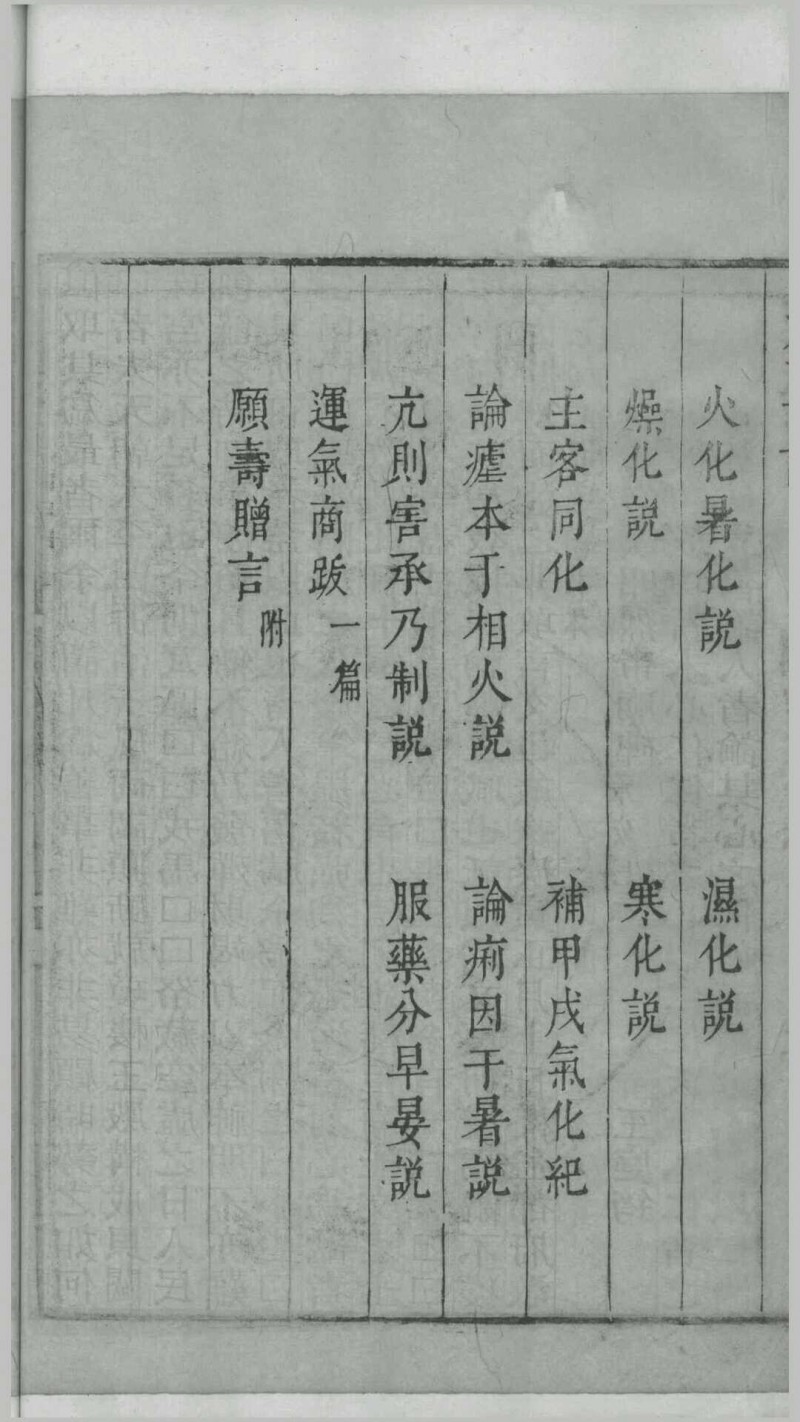 火化暑化説　濕化説
燥化説　寒化説
主客同化　補甲戌氣化紀
論瘧本于相火説　論痢因于暑説
亢則害承乃制説　服藥分早晏説
運氣商跋一篇
願壽贈言附